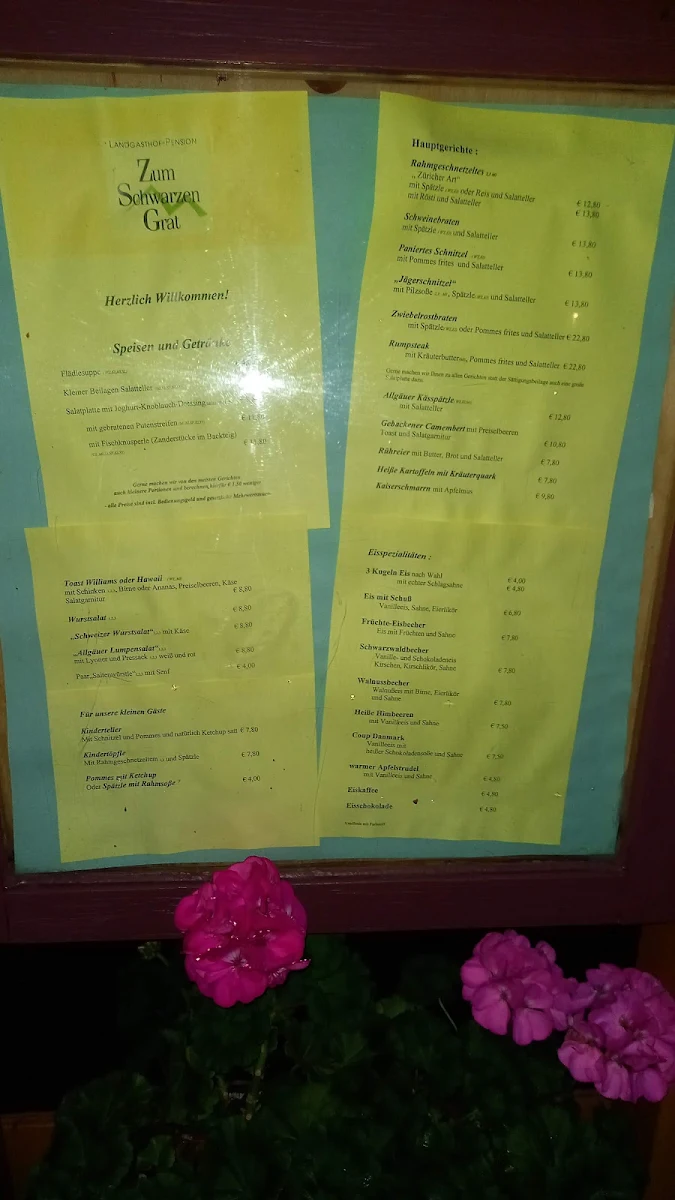 LANDGASTHOF-PENSION
Zum
Schwarzen
Grat
Herzlich Willkommen!
Speisen und Getränke
Flädlesuppe
Kleiner Beilagen Salatteller
Salatplatte mit Joghurt-Knoblauch-Dressing
mit gebratenen Putenstreifen
mit Fischknusperle (Zanderstücke im Backteig)
Gerne machen wir von den meisten Gerichten
auch kleinere Portionen und berechnen hierfür € 1,50 weniger.
-alle Preise sind incl. Bedienungsgeld und gesetzlicher Mehrwertsteuer-
Toast Williams oder Hawaii
mit Schinken, Birne oder Ananas, Preiselbeeren, Käse
Salatgarnitur € 8,80
Wurstsalat € 8,80
„Schweizer Wurstsalat" mit Käse € 8,80
„Allgäuer Lumpensalat"
mit Lyoner und Pressack weiß und rot € 8,80
Paar „Saitenwürstle" mit Senf € 4,00
Für unsere kleinen Gäste
Kinderteller
Mit Schnitzel und Pommes und natürlich Ketchup satt € 7,80
Kindertöpfle
Mit Rahmgeschnetzeltem und Spätzle € 7,80
Pommes mit Ketchup
Oder Spätzle mit Rahmsoße € 4,00
Hauptgerichte :
Rahmgeschnetzeltes
„ Züricher Art"
mit Spätzle oder Reis und Salatteller € 12,80
mit Rösti und Salatteller € 13,80
Schweinebraten
mit Spätzle und Salatteller € 13,80
Paniertes Schnitzel
mit Pommes frites und Salatteller € 13,80
„Jägerschnitzel"
mit Pilzsoße, Spätzle und Salatteller € 13,80
Zwiebelrostbraten
mit Spätzle oder Pommes frites und Salatteller € 22,80
Rumpsteak
mit Kräuterbutter, Pommes frites und Salatteller € 22,80
Gerne machen wir Ihnen zu allen Gerichten statt der Sättigungsbeilage auch eine große
Salatplatte dazu.
Allgäuer Kässpätzle
mit Salatteller € 12,80
Gebackener Camembert mit Preiselbeeren
Toast und Salatgarnitur € 10,80
Rühreier mit Butter, Brot und Salatteller € 7,80
Heiße Kartoffeln mit Kräuterquark € 7,80
Kaiserschmarrn mit Apfelmus € 9,80
Eisspezialitäten :
3 Kugeln Eis nach Wahl € 4,00
mit echter Schlagsahne € 4,80
Eis mit Schuß
Vanilleeis, Sahne, Eierlikör € 6,80
Früchte-Eisbecher
Eis mit Früchten und Sahne € 7,80
Schwarzwaldbecher
Vanille- und Schokoladeneis
Kirschen, Kirschlikör, Sahne € 7,80
Walnussbecher
Walnußeis mit Birne, Eierlikör
und Sahne € 7,80
Heiße Himbeeren
mit Vanilleeis und Sahne € 7,50
Coup Danmark
Vanilleeis mit
heißer Schokoladensoße und Sahne € 7,50
warmer Apfelstrudel
mit Vanilleeis und Sahne € 4,80
Eiskaffee € 4,80
Eisschokolade € 4,80